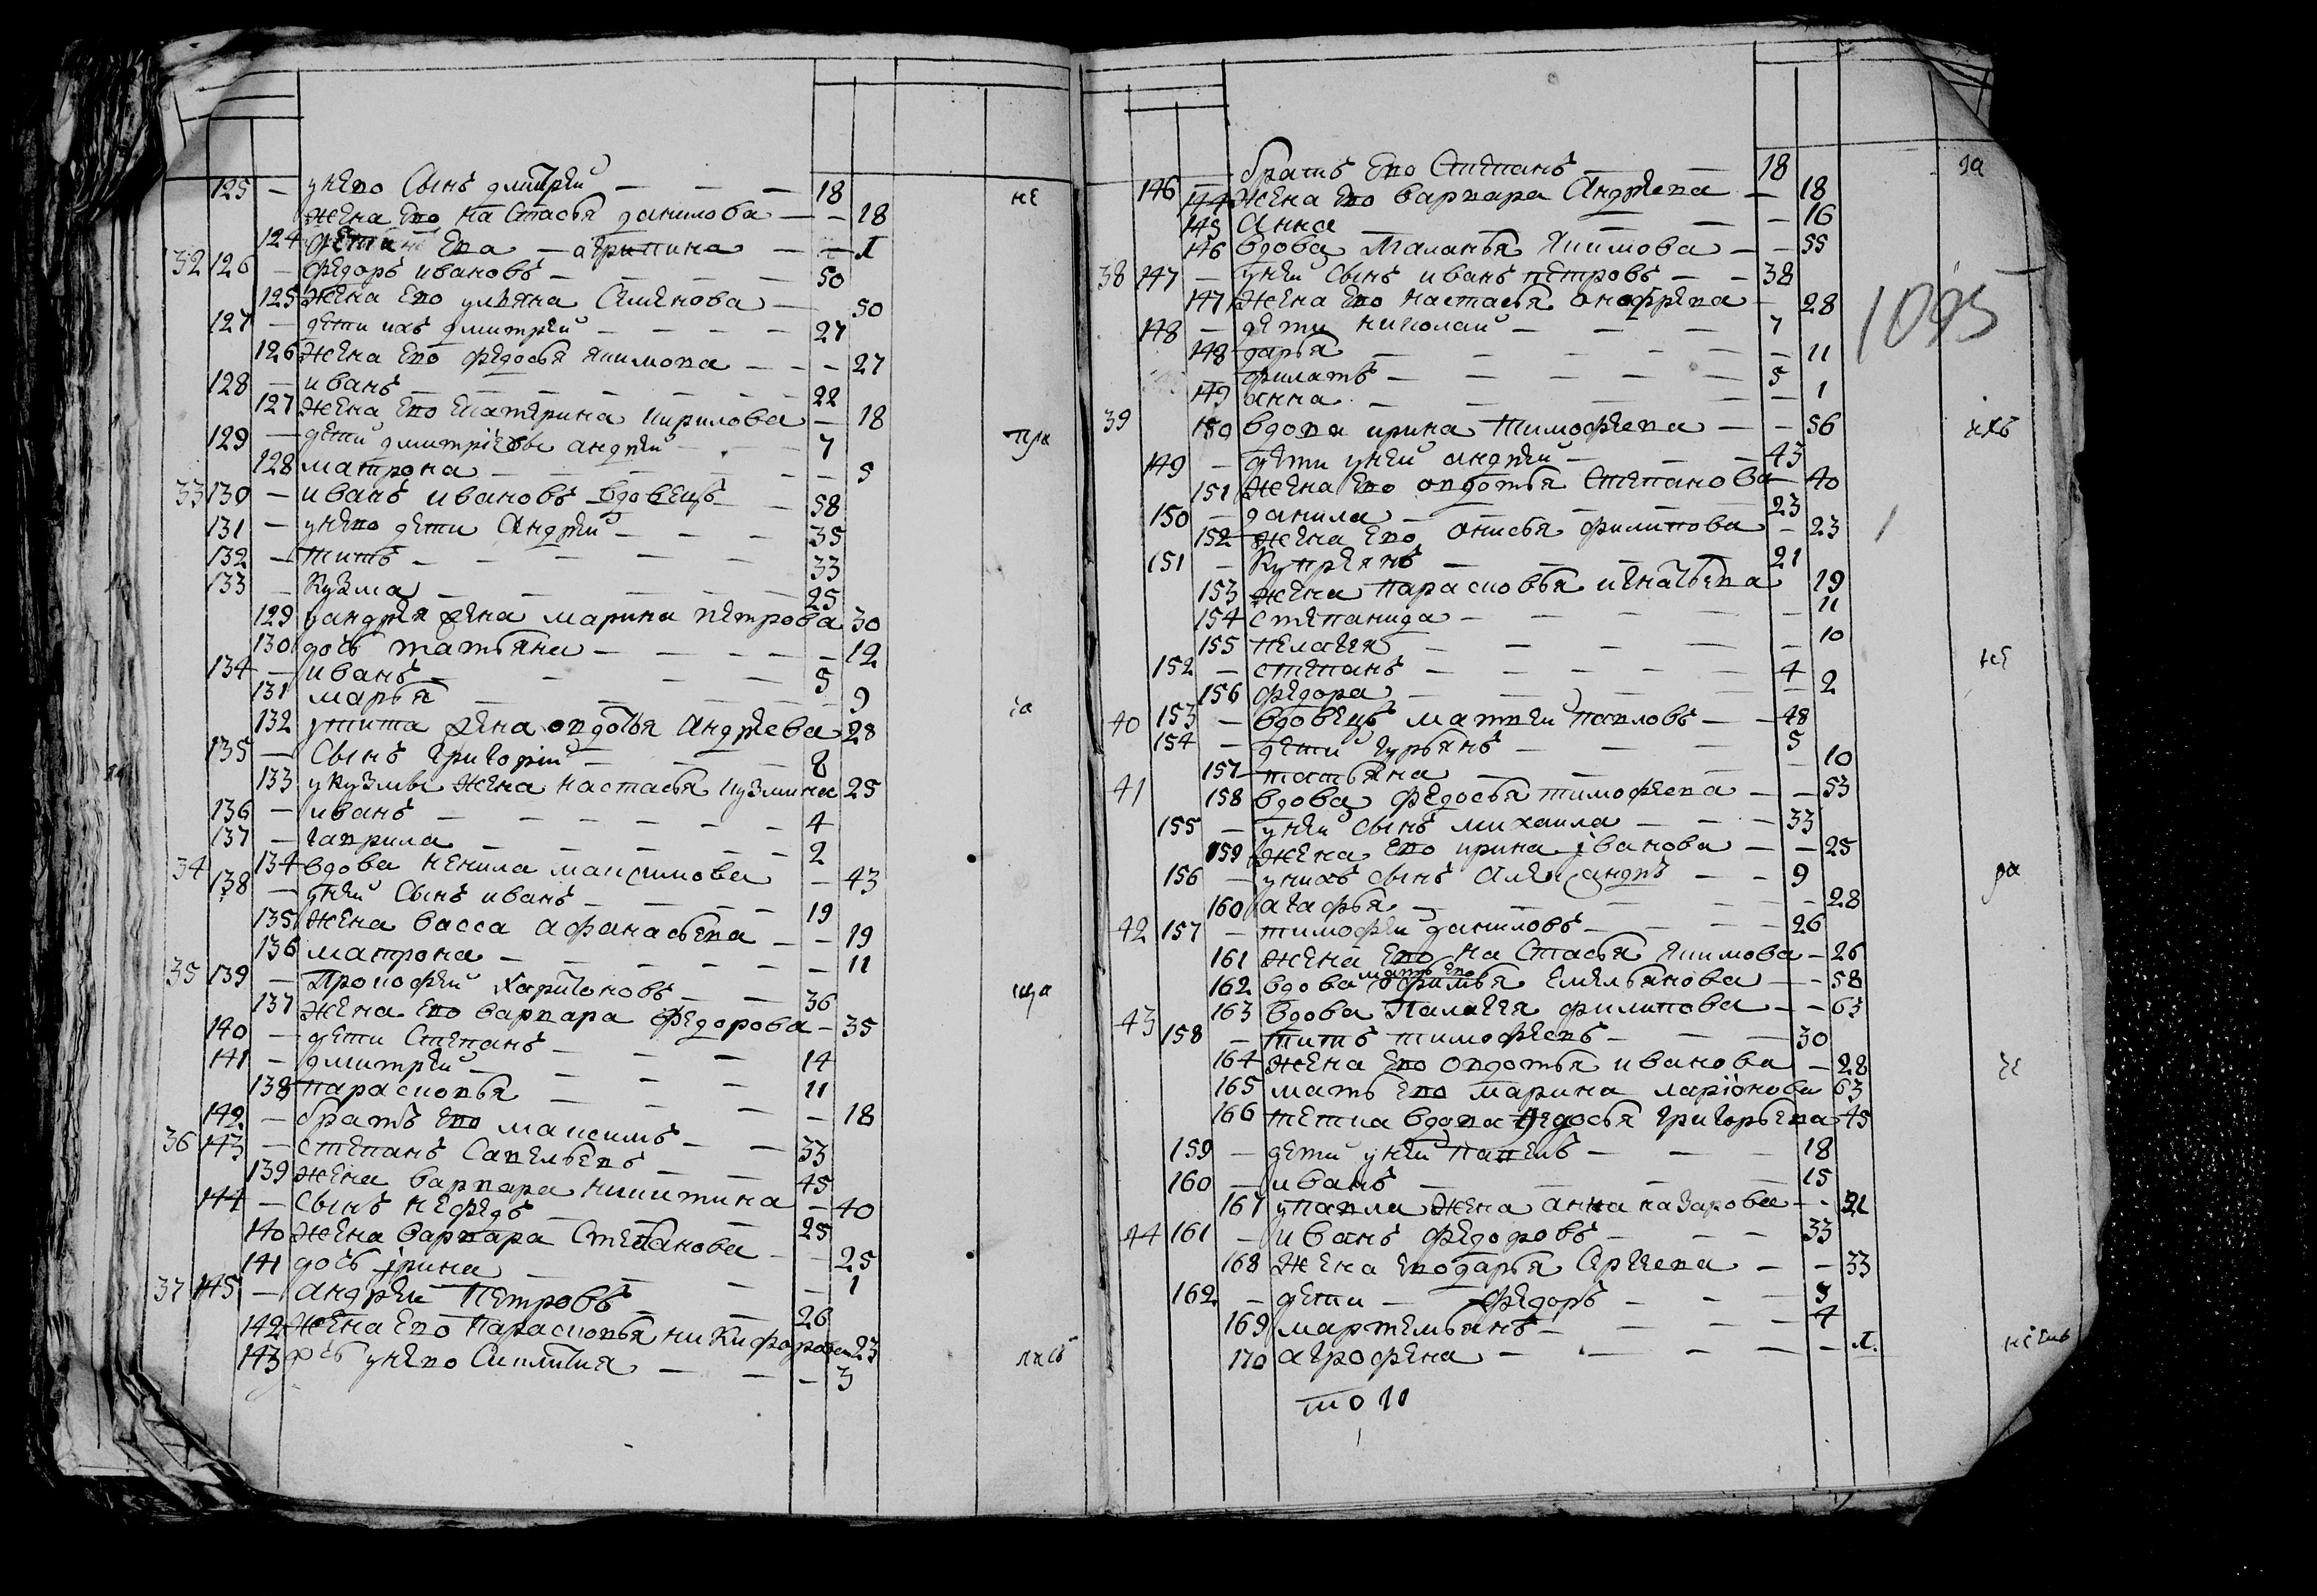 125 — у него сынъ дмитрей — — — 18 не
жена его настасья данилова — — 18
124 дети — его — агрипина — — 1
32 126 — федоръ ивановъ — — — 50
125 жена его ульяна семенова — 50
127 — дети ихъ дмитрей — — — — 27
126 жена его федосья якимова — — — 27
128 — иванъ — — — — — — 22
127 жена его екатерина кирилова — 18
129 — дети дмитріевы андрей — — — 7 пра
128 матрона — — — — — — 5
33 130 — иванъ ивановъ вдовецъ — — 58
131 — у него дети андрей — — — 35
132 — титъ — — — — — 33
133 — кузма — — — — — 25
129 у андрея жена марина петрова 30
130 дочь татьяна — — — — — 12
134 — иванъ — — — — 5
131 марья — — — — — 9 са
132 у тита жена овдотья андреева 28
135 — сынъ григорій — — — 8
133 у кузмы жена настасья кузмина 25
136 — иванъ — — — — — — — 4
137 — гаврила — — — — — 2
34 134 вдова ненила максимова — 43
138 — у ней сынъ иванъ — — — — 19
135 жена васса афанасьева — — 19
136 матрона — — — — — — 11
35 139 — прокофей харитоновъ — — 36 ща
137 жена его варвара федорова — 35
140 — дети степанъ — — — 14
141 — дмитрей — — — — 11
138 парасковья — — — — 18
142 — братъ его максимъ — — 33
36 143 — степанъ савельевъ — — 45
139 жена варвара никитина — 40
144 — сынъ нефедъ — — — 25
140 жена варвара степанова — — 25
141 дочь ірина — — — — 1
37 145 — андрей петровъ — — 26
142 жена его парасковья никифорова 23
143 дочь у него — — — 3 лись
братъ его степанъ — — 18 за
146 — 144 жена его варвара андреева — 18
145 анна — — — — — 16
146 вдова маланья якимова — — 55
38 147 — у ней сынъ иванъ петровъ — — 38
147 жена его настасья онофреева — 28
1095
148 — дети николай — — — 7
148 дарья — — — — — — 11
— филатъ — — — — — 5
149 анна — — — — — 1
39 150 вдова ирина тимофеева — — 56 ихъ
149 — дети у ней андрей — — — 43
151 жена его овдотья степанова — 40
150 — данила — — — — — 23
152 жена его онисья филипова — 23
151 — купреянъ — — — — 21
153 жена парасковья игнатьева 19
154 степанида — — — — — 11
155 пелагея — — — — — 10
152 — степанъ — — — — — 4 не
156 федора — — — — — 2
40 153 — вдовецъ матвей павловъ — — 48
154 — дети гурьянъ — — — 5
157 татьяна — — — — — 10
41 158 вдова федосья тимофеева — — 53
155 — у ней сынъ михаила — — — 33
159 жена его ирина іванова — — 25
156 — у нихъ сынъ александръ — — 9 ра
160 агафья — — — — — — 28
42 157 — тимофей даниловъ — — — — 26
161 жена его настасья якимова — 26
мать его
162 вдова офимья емельянова — — 58
163 вдова палагея филипова — — 63
43 158 — титъ тимофеевъ — — — 30
164 жена его овдотья иванова — 28
165 мать его марина ларіонова 63
166 тетка вдова федосья григорьева 45
159 — дети у ней павелъ — — — 18
160 — иванъ — — — — — 15
167 у павла жена анна назарова — — 21
44 161 — иванъ федоровъ — — — 33
168 жена его дарья сергеева — — 33
162 — дети — федоръ — — — 9
169 мартемьянъ — — — — — 4
170 агрофена — — — — — 1